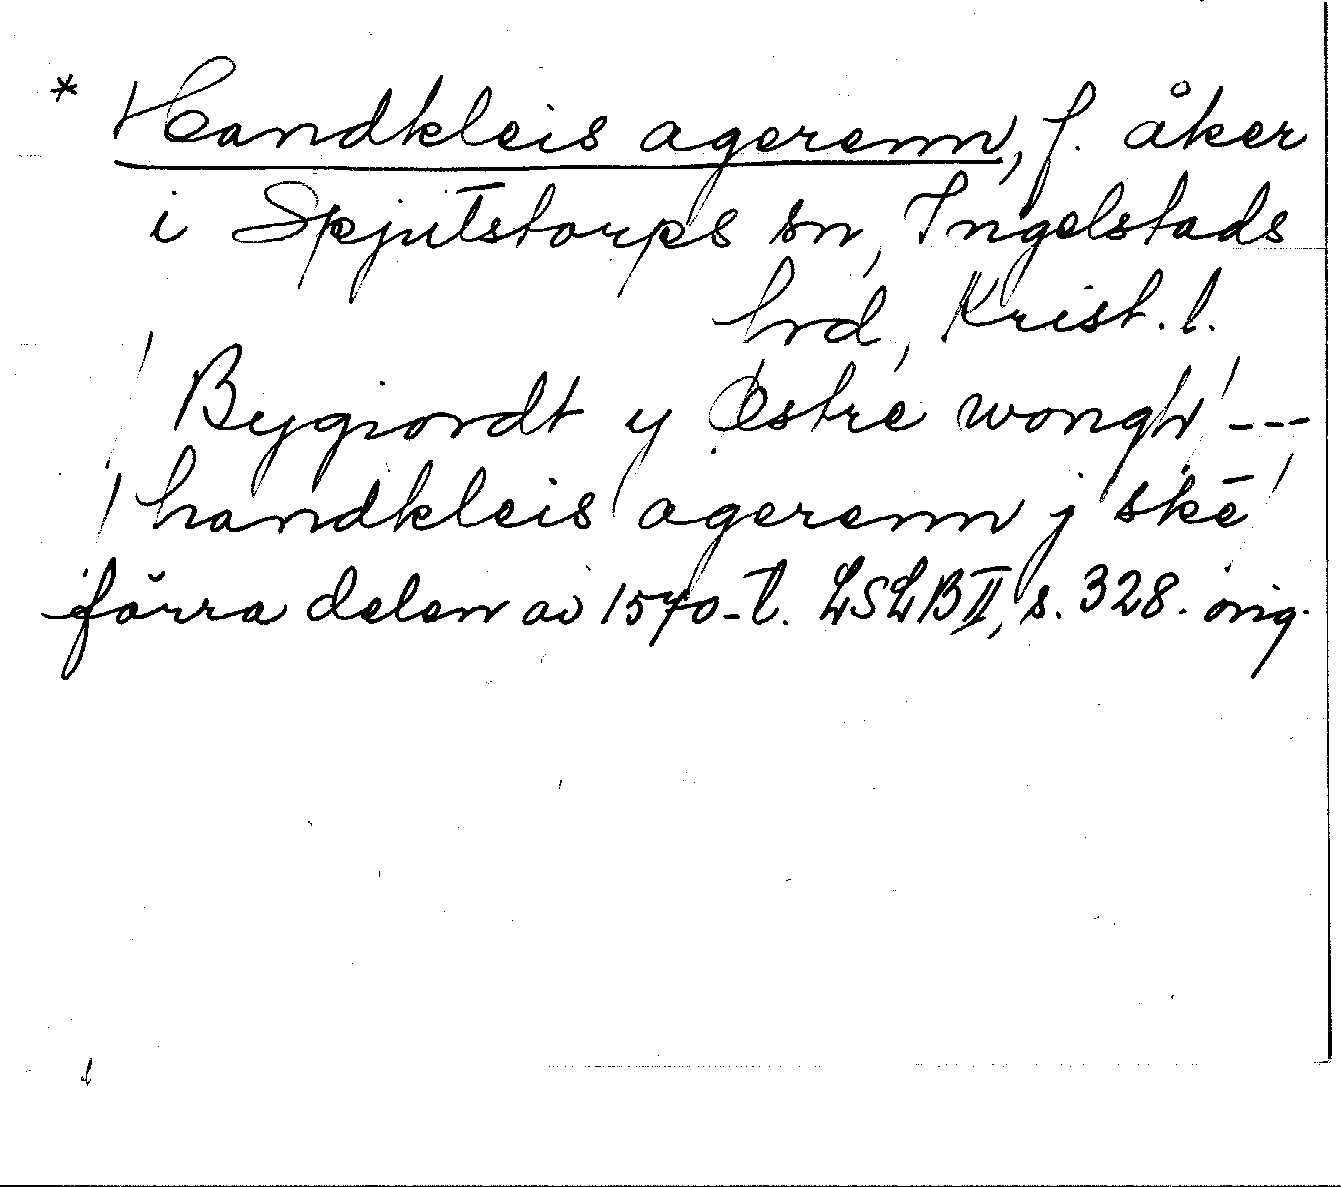 * Handkleis agerenn, f. åker
i Spjutstorps sn, Ingelstads
hrd, Krist. l.
/ Bygiordt y Østre wongh / ---
/ handkleis agerenn j skē /
förra delen av 1570-t. LSLB II, s. 328. orig.